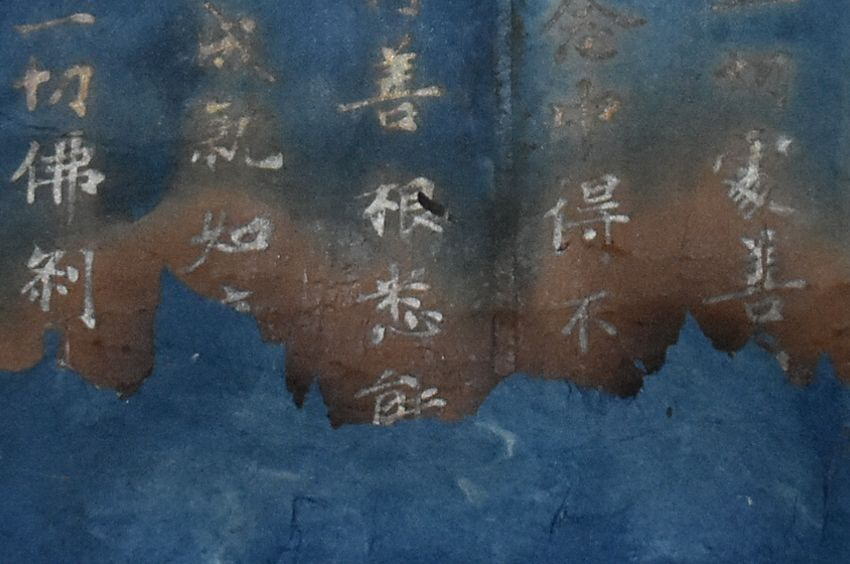 切眾善
念中得不
善根悉能
成就如
一切佛剎